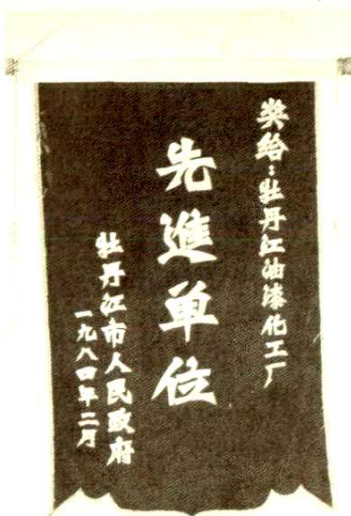 奖给：牡丹江油漆化工厂
先進单位
牡丹江市人民政府
一九八四年二月